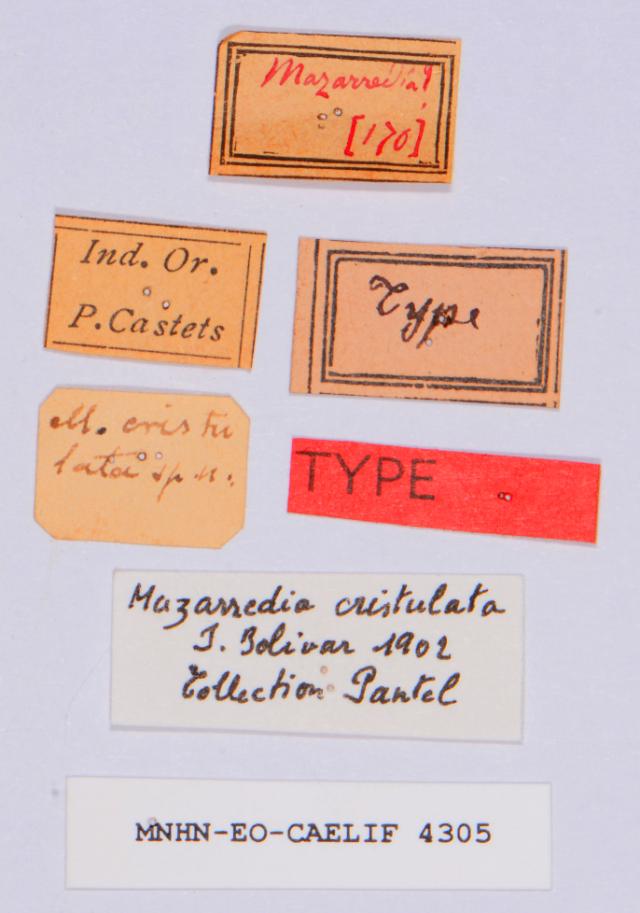 Mazarredia!
[170]
Ind. Or.
P. Castets
Type
M. cristu
lata sp. n.
TYPE
Mazarredia cristulata
I. Bolivar 1902
Collection Pantel
MNHN-EO-CAELIF 4305